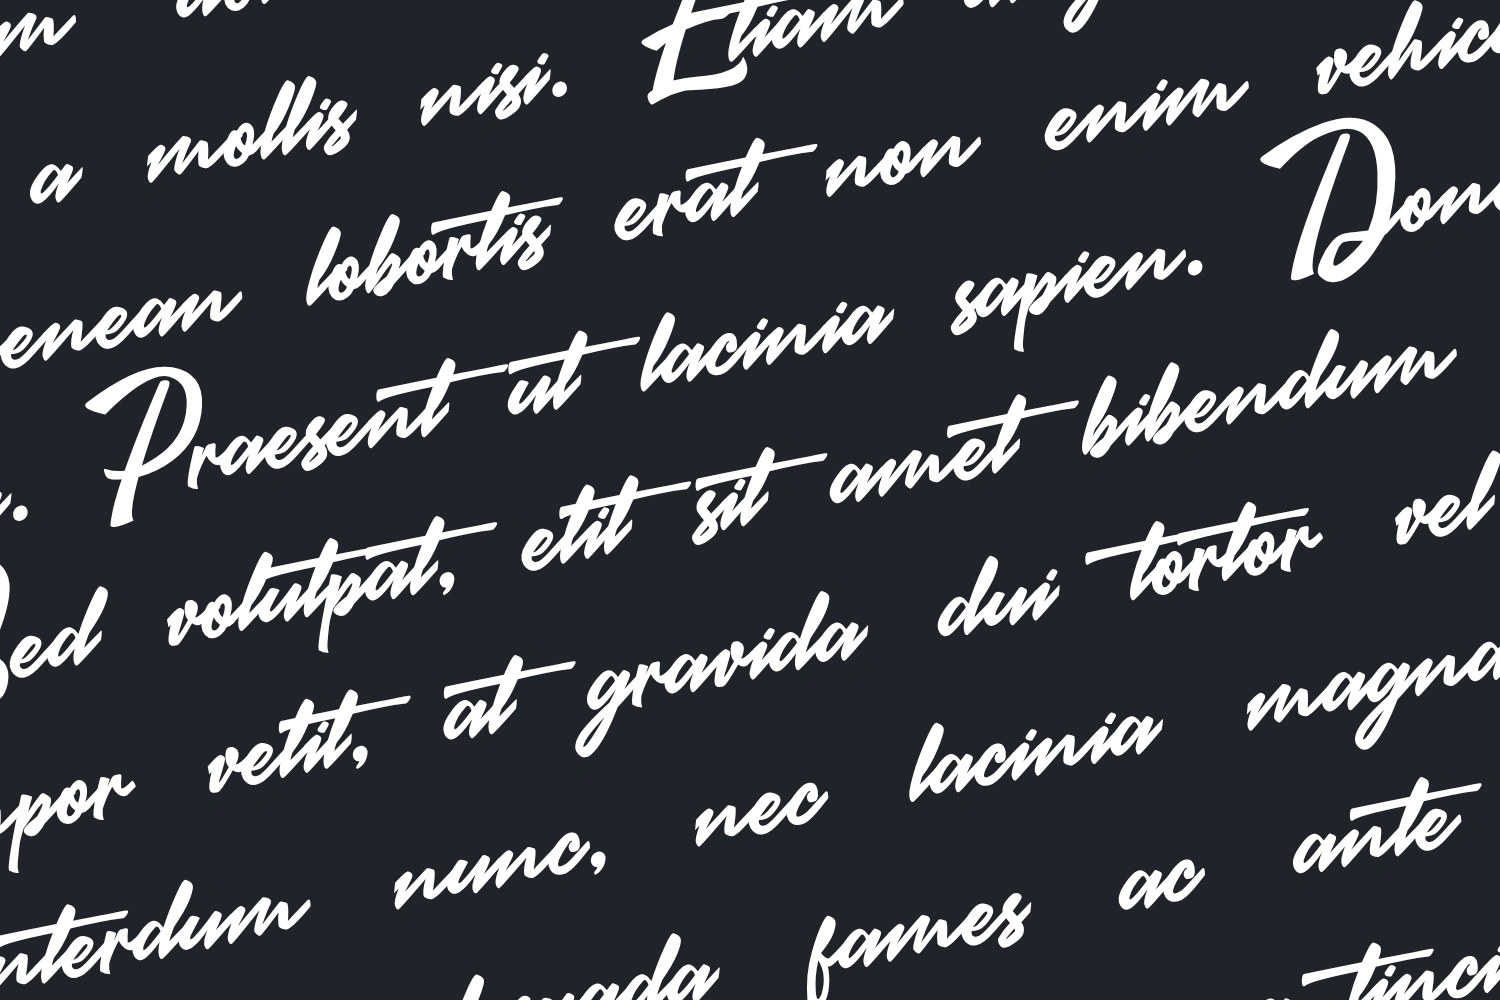 a mollis nisi. Etiam
enean lobortis erat non enim vehic
Praesent ut lacinia sapien. Done
Sed volutpat, elit sit amet bibendum
por velit, at gravida dui tortor vel
nterdum nunc, nec lacinia magna
fames ac ante
tinci